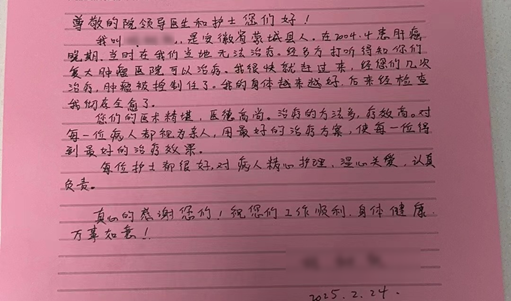 尊敬的院领导医生和护士您们好！
我叫 是安徽省蒙城县人，在2024.4患肝癌
晚期，当时在我们当地无法治疗。经多方打听得知你们
复大肿瘤医院可以治疗。我很快就赶过来，经您们几次
治疗，肿瘤被控制住了。我的身体越来越好，后来经检查
我彻底全愈了。
您们的医术精堪，医德高尚。治疗的方法多，疗效高。对
每一位病人都视为亲人，用最好的治疗方案，使每一位得
到最好的治疗效果。
每位护士都很好，对病人精心护理，温心关爱，认真
负责。
真心的感谢您们！祝您们工作顺利，身体健康
万事如意！
2025.2.24.